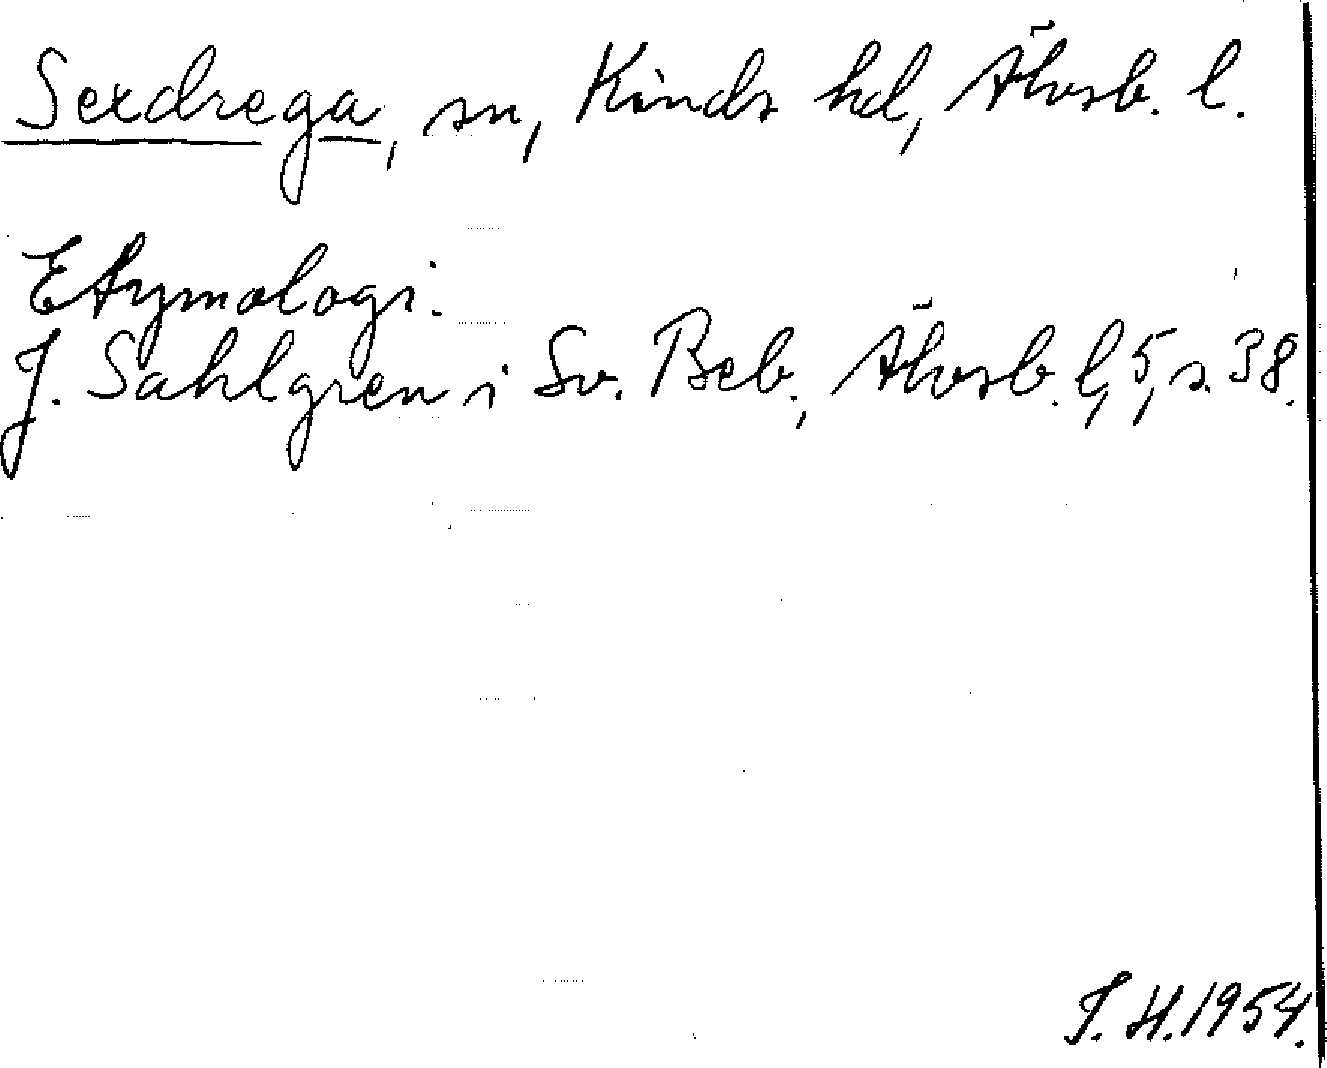 Sexdrega, sn, Kinds hd, Älvsb. l.
Etymologi.
J. Sahlgren i Sv. Beb., Älvsb. l, 5, s. 38.
T. H. 1954.